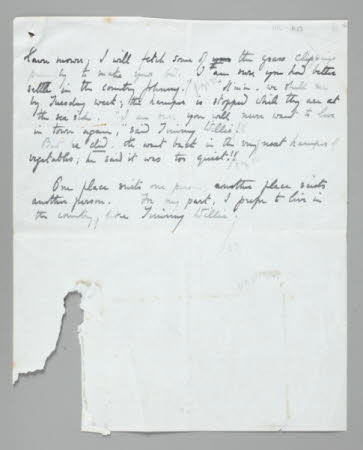 lawn mower; I will fetch some of the grass clippings
to make your bed. I am sure you had better
settle in the country Johnny!
by Tuesday week; the hamper is stopped while they are at
the sea side. I am sure you will never want to live
in town again, said Timmy Willie!!
But he did. He went back in the very next hamper of
vegetables; he said it was too quiet!!
One place suits one person, another place suits
another person. For my part, I prefer to live in
the country, like Timmy Willie.